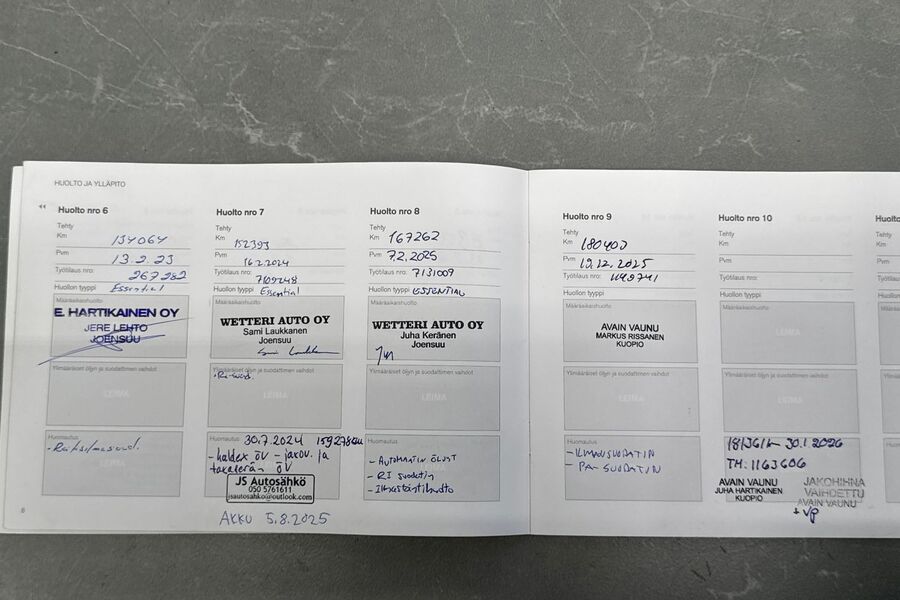 HUOLTO JA YLLÄPITO
Huolto nro 6
Tehty
Km 134064
Pvm 13.2.23
Työtilaus nro: 267282
Huollon tyyppi Essential
Määräaikaishuolto
E. HARTIKAINEN OY
JERE LEHTO
JOENSUU
Ylimääräiset öljyn ja suodattimen vaihdot
LEIMA
Huomautus
- Raitisilmasuod.
LEIMA
8
Huolto nro 7
Tehty
Km 152393
Pvm 16.2.2024
Työtilaus nro:
Huollon tyyppi Essential
Määräaikaishuolto
WETTERI AUTO OY
Sami Laukkanen
Joensuu
Ylimääräiset öljyn ja suodattimen vaihdot
LEIMA
Huomautus 30.7.2024
- haldex öv - jakov. ja
takaperän öv
JS Autosähkö
050 5761611
jsautosahko@outlook.com
AKKU 5.8.2025
Huolto nro 8
Tehty
Km 167262
Pvm 7.2.2025
Työtilaus nro: 7131009
Huollon tyyppi ESSENTIAL
Määräaikaishuolto
WETTERI AUTO OY
Juha Keränen
Joensuu
Ylimääräiset öljyn ja suodattimen vaihdot
LEIMA
Huomautus
- AUTOMAATIN ÖLJYT
- RI suodatin
Huolto nro 9
Tehty
Km 180400
Pvm 19.12.2025
Työtilaus nro: 1149741
Huollon tyyppi
Määräaikaishuolto
AVAIN VAUNU
MARKUS RISSANEN
KUOPIO
Ylimääräiset öljyn ja suodattimen vaihdot
LEIMA
Huomautus
- ILMANSUODATIN
- PA-SUODATIN
Huolto nro 10
Tehty
Km
Pvm
Työtilaus nro:
Huollon tyyppi
Määräaikaishuolto
LEIMA
Ylimääräiset öljyn ja suodattimen vaihdot
LEIMA
30.1.2026
TM: 1163606
AVAIN VAUNU
JUHA HARTIKAINEN
KUOPIO
JAKOHIHNA
VAIHDETTU
AVAIN VAUNU
+ vp
Huolto
Tehty
Km
Pvm